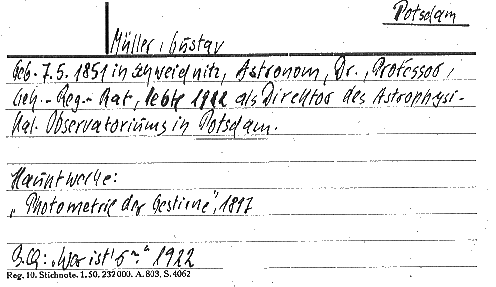 Potsdam
Müller, Gustav
Geb. 7.5.1851 in Schweidnitz, Astronom, Dr., Professor,
Geh.-Reg.-Rat, lebte 1922 als Direktor des Astrophysi-
kal. Observatoriums in Potsdam.
Hauptwerke:
"Photometrie der Gestirne", 1897
B.Q.: "Wer ist's?" 1922
Reg. 10. Stichnote. 1. 50. 232000. A. 803, S. 4062